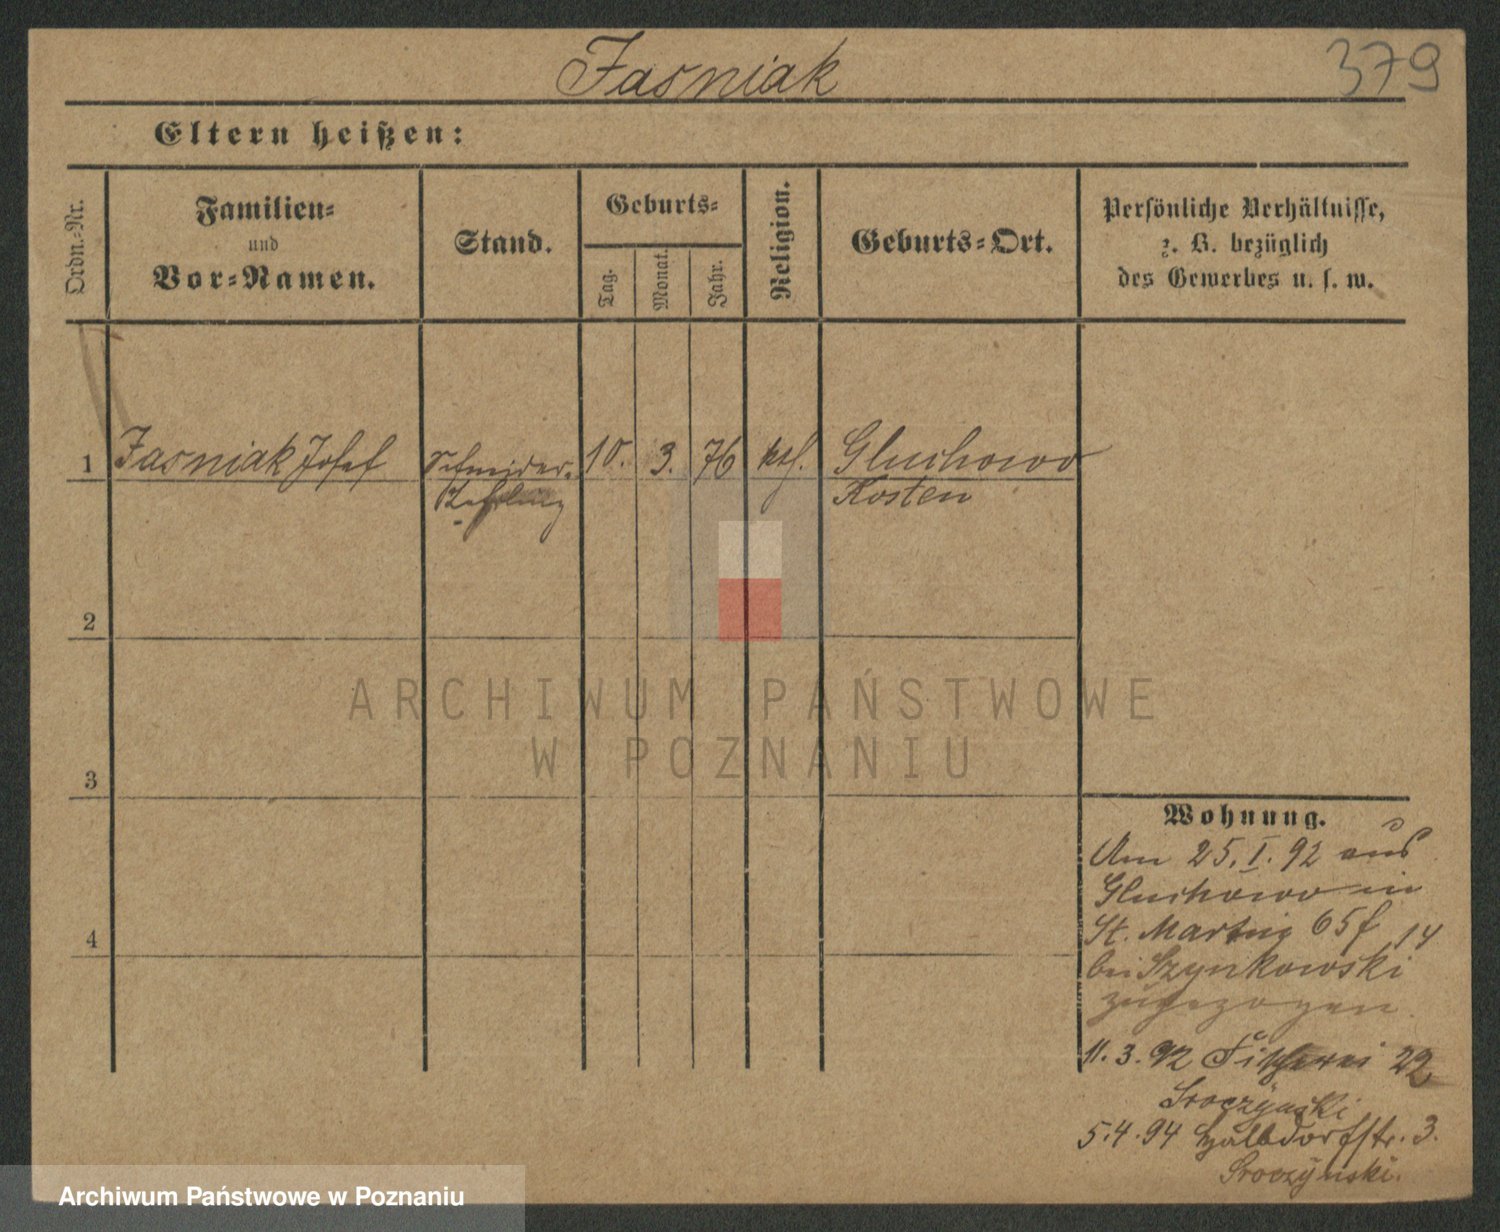 Jasniak
379
Eltern heißen:
Ordn.-Nr.
Familien-
und
Vor-Namen.
Stand.
Geburts-
Tag.
Monat.
Jahr.
Religion.
Geburts-Ort.
Persönliche Verhältnisse,
z. B. bezüglich
des Gewerbes u. s. w.
1 Jasniak Josef Schneider- 10. 3. 76 kath. Gluchowo
Lehrling Kosten
2
3
4
ARCHIWUM PAŃSTWOWE
W POZNANIU
Wohnung.
Am 25. I. 92 aus
Gluchowo in
St. Martin 65 f 14
bei Szynkowski
zugezogen.
11. 3. 92 Fischerei 22
Sroczyński
5. 4. 94 Halbdorfstr. 3.
Sroczyński.
Archiwum Państwowe w Poznaniu